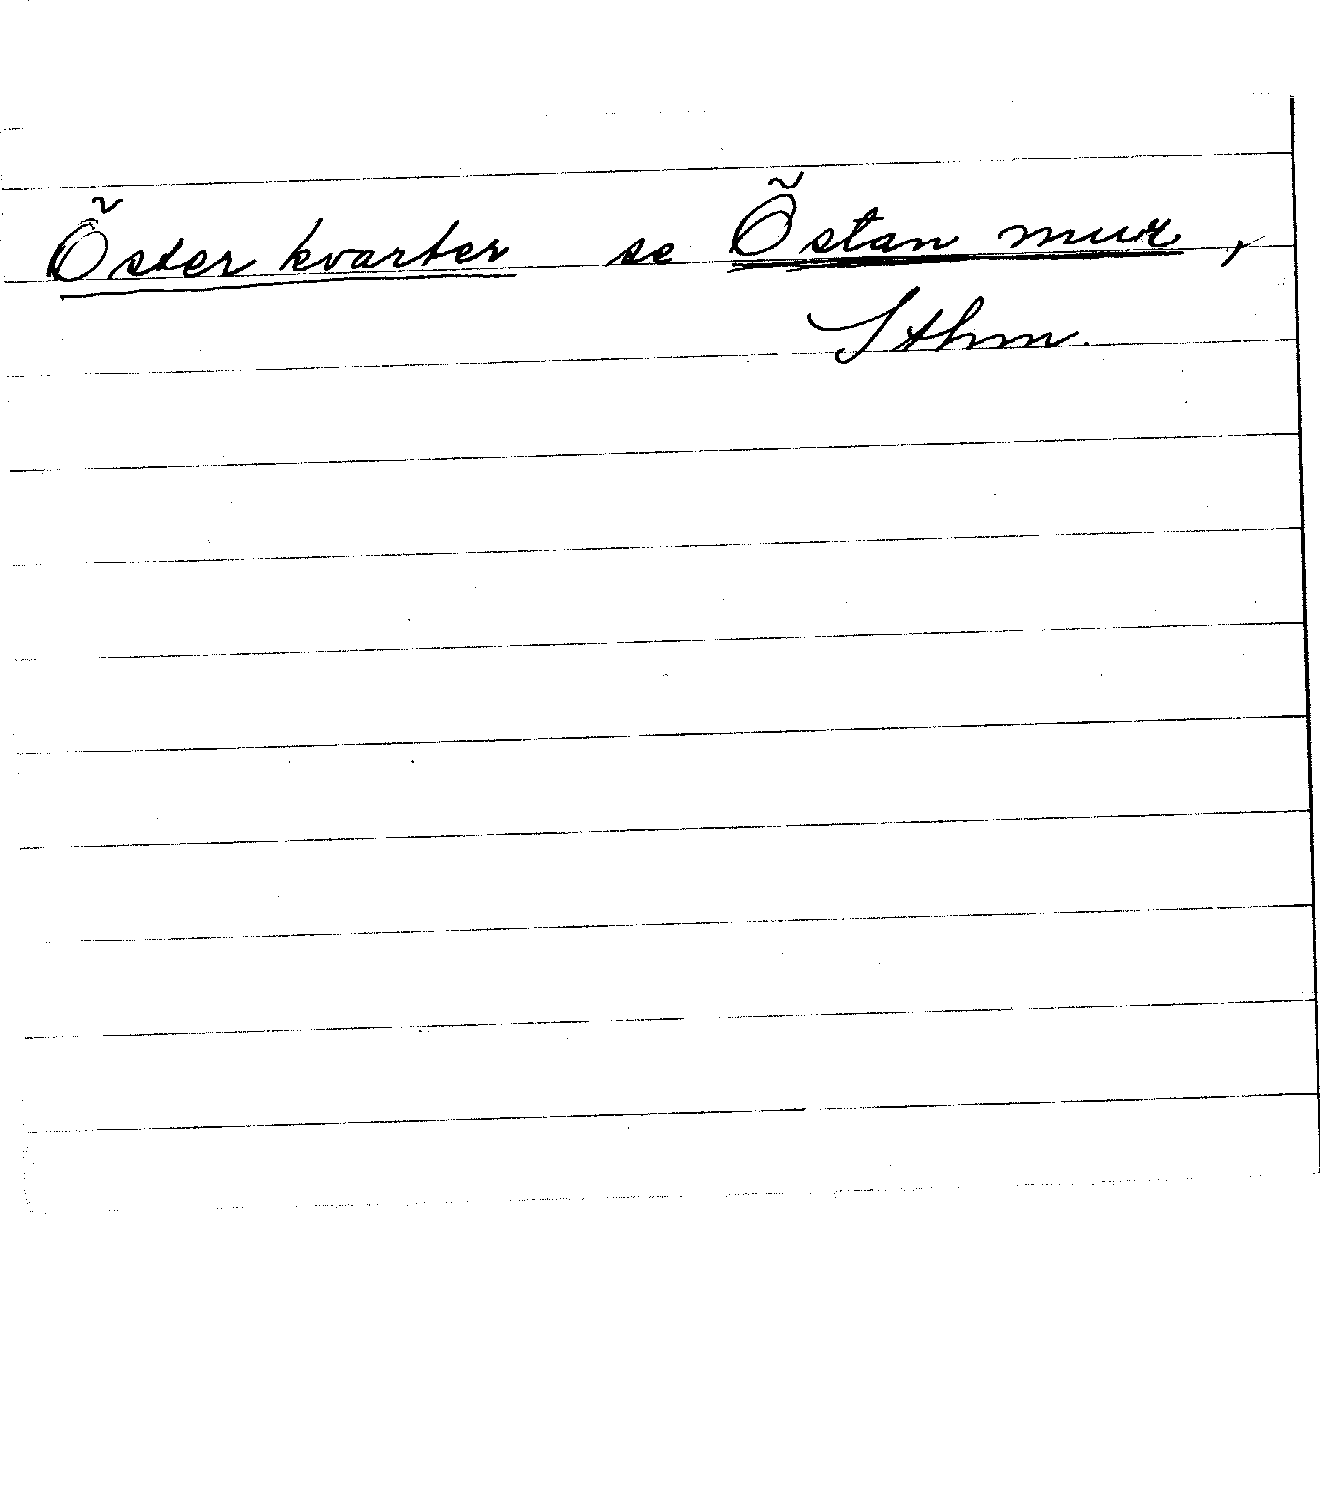 Öster kvarter se Östan mur,
Sthm.